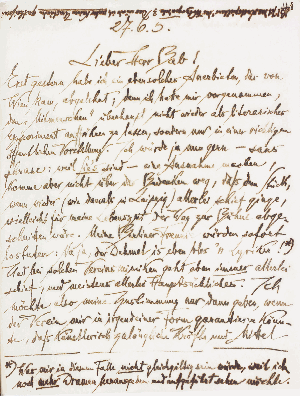 27.6.5.
Lieber Herr Bab!
Erst gestern habe ich ein ebensolches Anerbieten, der von
Wien kam, abgelehnt; denn ich habe mir vorgenommen,
den „Mitmenschen“ überhaupt nicht wieder als literarisches
Experiment aufführen zu lassen, sondern nur in einer richtigen
öffentlichen Vorstellung. Ich würde ja nun gern — sans
phrase: weil Sie es sind — eine Ausnahme machen,
komme aber nicht über die Bedenken weg, daß das Stück,
wenn wieder (wie damals in Leipzig) alles schief ginge,
vielleicht für meine Lebenszeit der Weg zur Bühne abge-
schnitten wäre. Meine würden sofort
: Naja, der Dehmel is eben blos 'n Lyriker. *)
Und bei solchen Vereins geht aben immer allerlei
schief, und meistens allerlei Hauptsächliches. Ich
möchte also meine Zustimmung nur dann geben, wenn
der Verein mir in irgendeiner Form garantieren könn-
te, daß künstlerisch Kräfte und Mittel
*) Was mir in diesem Falle nicht gleichgiltig sein würde, weil ich
noch mehr Dramen herausgeben und aufgeführt sehen möchte.